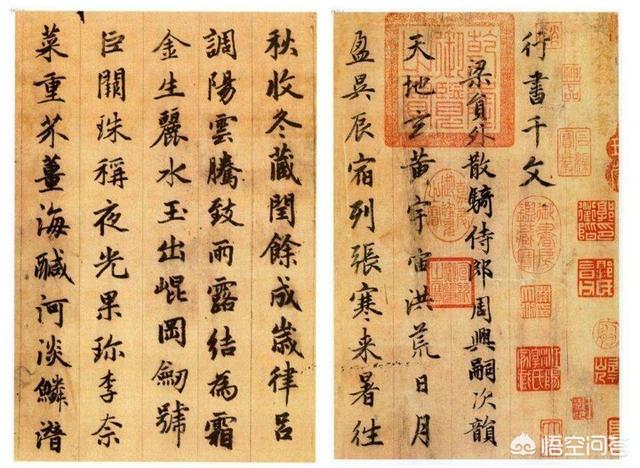 行書千文
梁貟外散騎侍郎周興嗣次韻
天地玄黄宇宙洪荒日月
盈昃辰宿列張寒来暑往
秋收冬藏閏餘成歲律吕
調陽雲騰致雨露結為霜
金生麗水玉出崐岡劒號
巨闕珠稱夜光果珍李柰
菜重芥薑海鹹河淡鱗潛
悟空问答